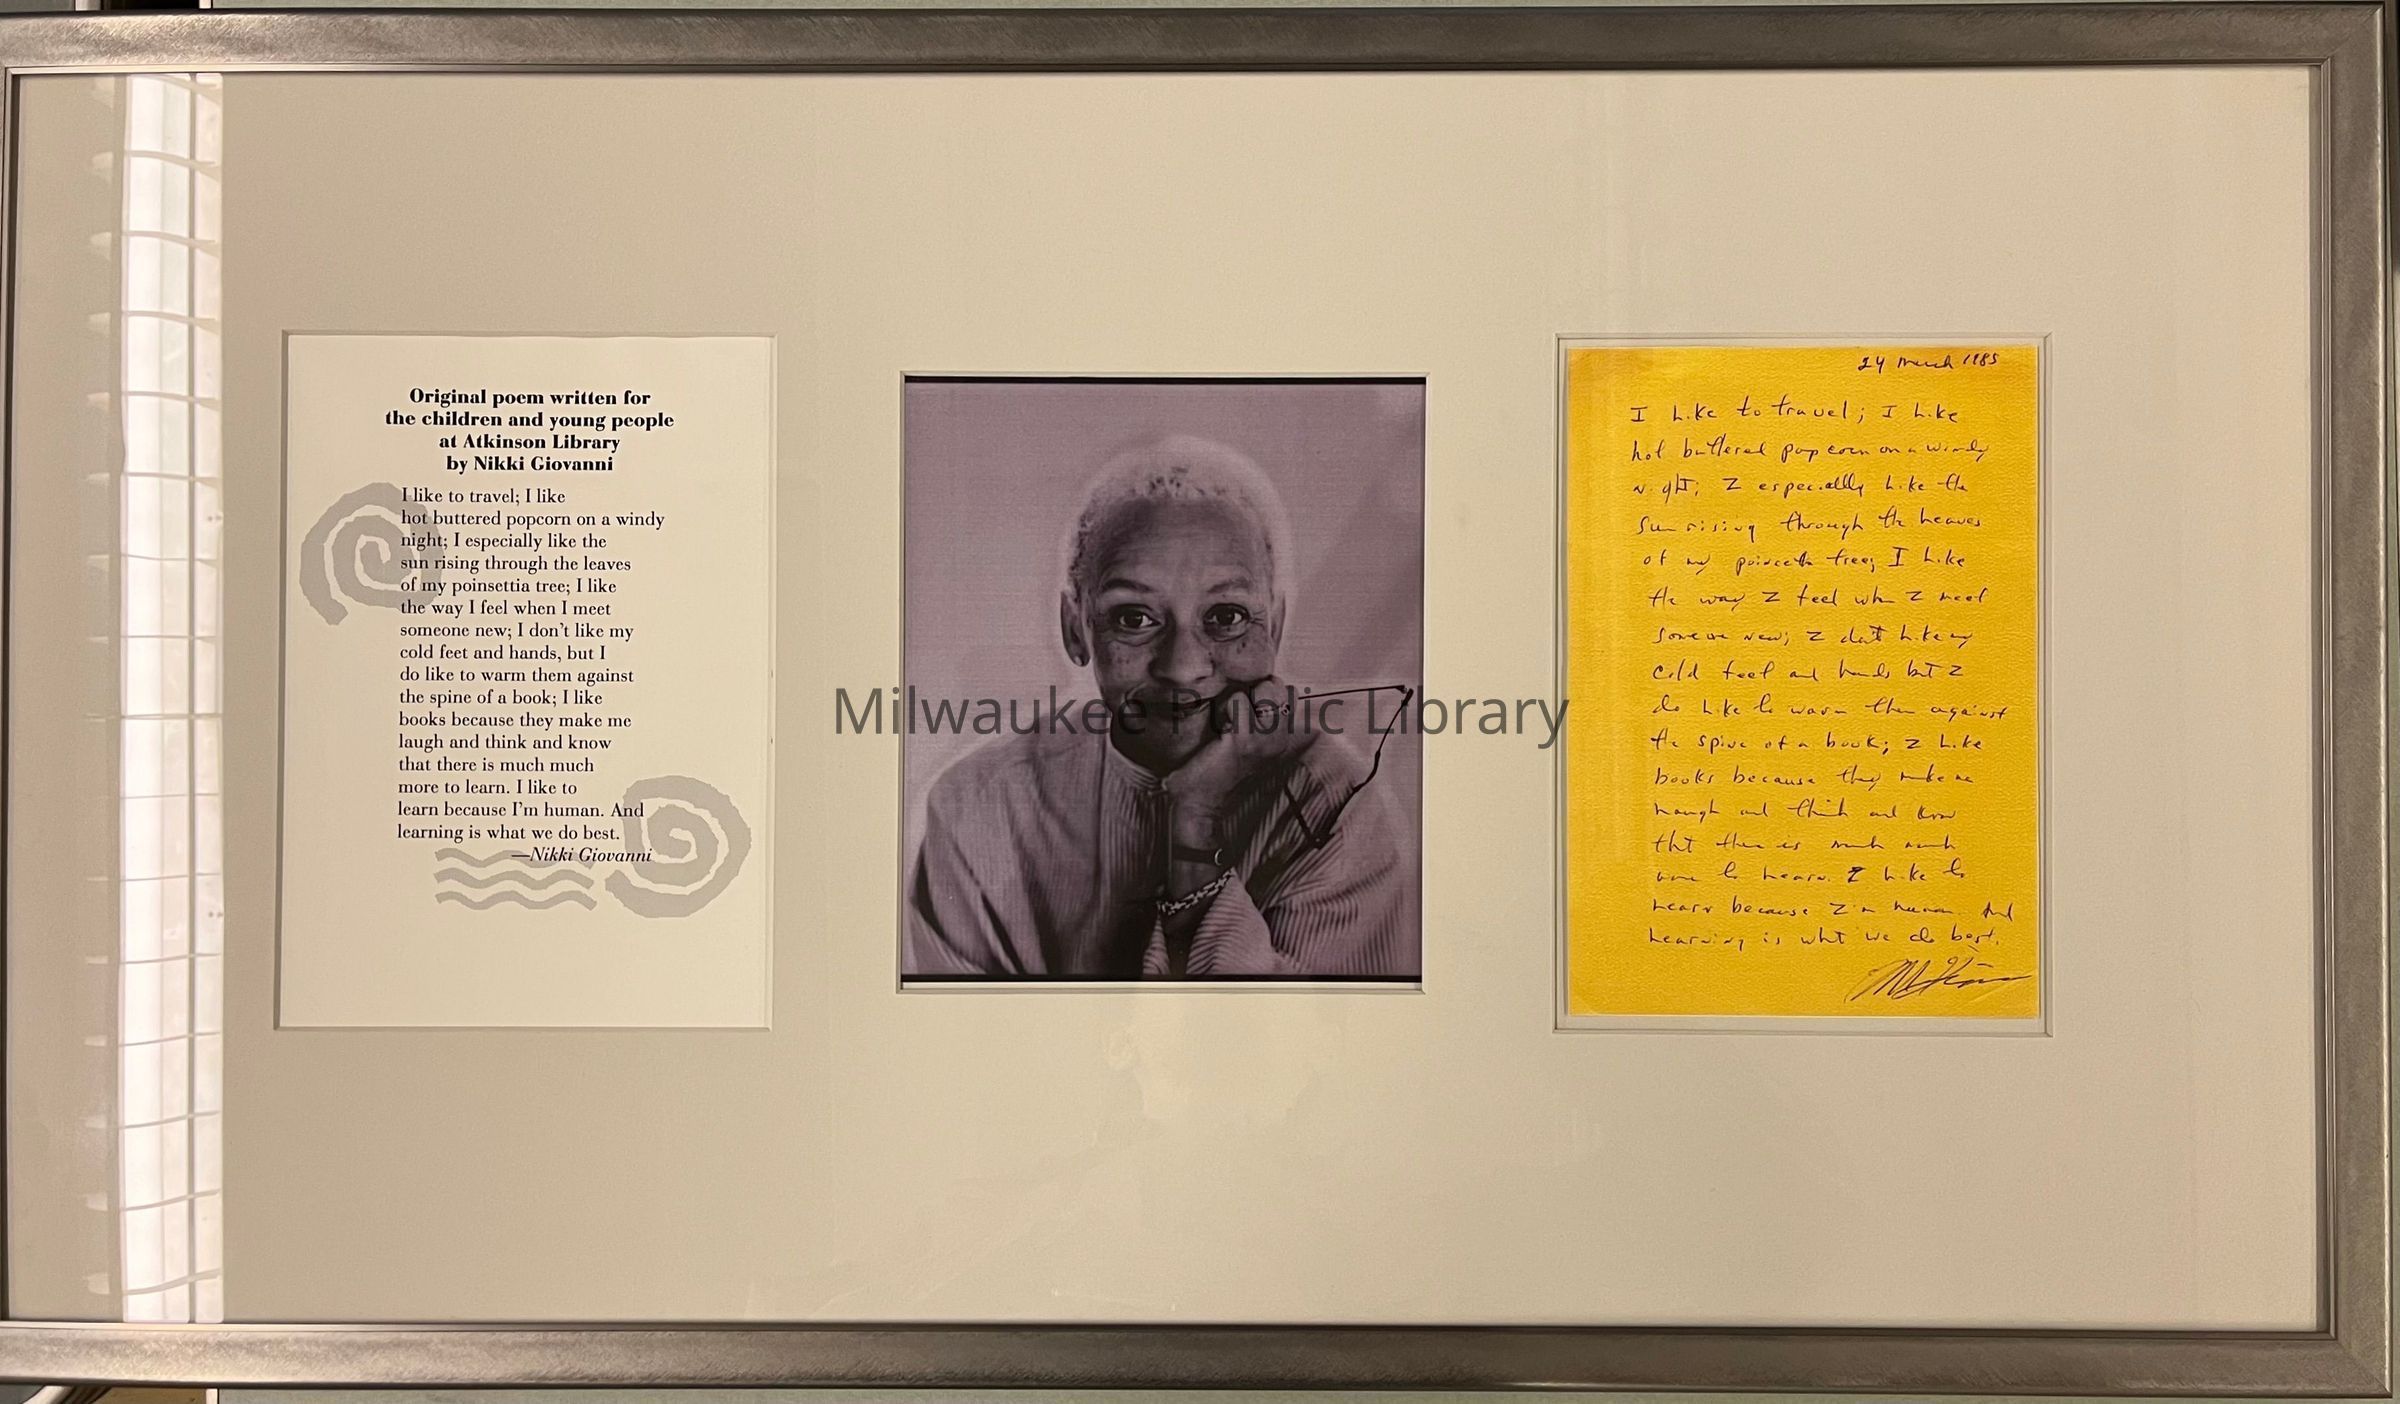 Original poem written for
the children and young people
at Atkinson Library
by Nikki Giovanni
I like to travel; I like
hot buttered popcorn on a windy
night; I especially like the
sun rising through the leaves
of my poinsettia tree; I like
the way I feel when I meet
someone new; I don't like my
cold feet and hands, but I
do like to warm them against
the spine of a book; I like
books because they make me
laugh and think and know
that there is much much
more to learn. I like to
learn because I'm human. And
learning is what we do best.
—Nikki Giovanni
Milwaukee Public Library
24 March 1985
I like to travel; I like
hot buttered pop corn on a windy
night; I especially like the
sun rising through the leaves
of my tree; I like
the way I feel when I meet
someone new; I don't like my
cold feet and hands but I
do like to warm them against
the spine of a book; I like
books because they make me
laugh and think and know
that there is much much
more to learn. I like to
learn because I'm human. And
learning is what we do best.